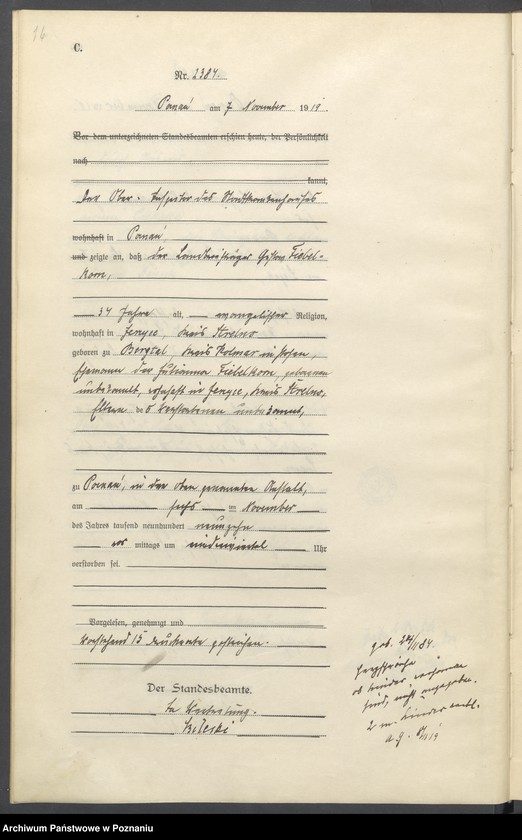 16
C.
Nr. 2384.
Poznań am 7 November 1919.
Vor dem unterzeichneten Standesbeamten erschien heute, der Persönlichkeit
nach
kannt,
Der Ober-Inspektor des Stadtkrankenhauses
wohnhaft in Poznań,
und zeigte an, daß der Landbriefträger Gustav Fiebel-
korn,
34 Jahre alt, evangelischer Religion,
wohnhaft in Kreis Strelno
geboren zu Bergtal, Kreis Kolmar in Posen,
Ehemann der Julianna Fiebelkorn, geborenen
unbekannt, wohnhaft in Kreis Strelno,
Eltern des Verstorbenen unbekannt,
zu Poznań, in der oben genannten Anstalt,
am sechs ten November
des Jahres tausend neunhundert neunzehn
vor mittags um Uhr
verstorben sei.
Vorgelesen, genehmigt und
Vorstehend 15 Druckworte gestrichen.
Der Standesbeamte.
In Vertretung.
geb. 24/11 84.
ob Kinder vorhanden
sind, nicht angegeben.
Archiwum Państwowe w Poznaniu